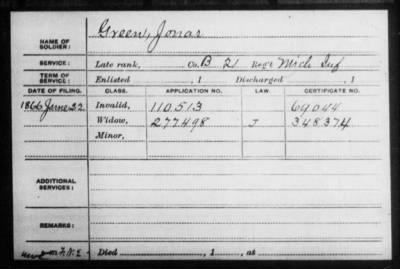 NAME OF SOLDIER: Green, Jonas
SERVICE: Late rank, Co. B 21 Reg't Mich Inf
TERM OF SERVICE: Enlisted , 1 Discharged , 1
DATE OF FILING. CLASS. APPLICATION NO. LAW. CERTIFICATE NO.
1866 June 22 Invalid, 110.513 69.044
Widow, 277.498 J 348.374
Minor,
ADDITIONAL SERVICES:
REMARKS:
Died , 1 , at